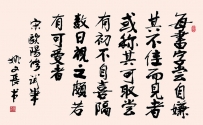 每書字嘗自嫌
其不佳而見者
或稱其可取嘗
有初不自喜隔
數日視之頗若
有可愛者
宋歐陽修試筆